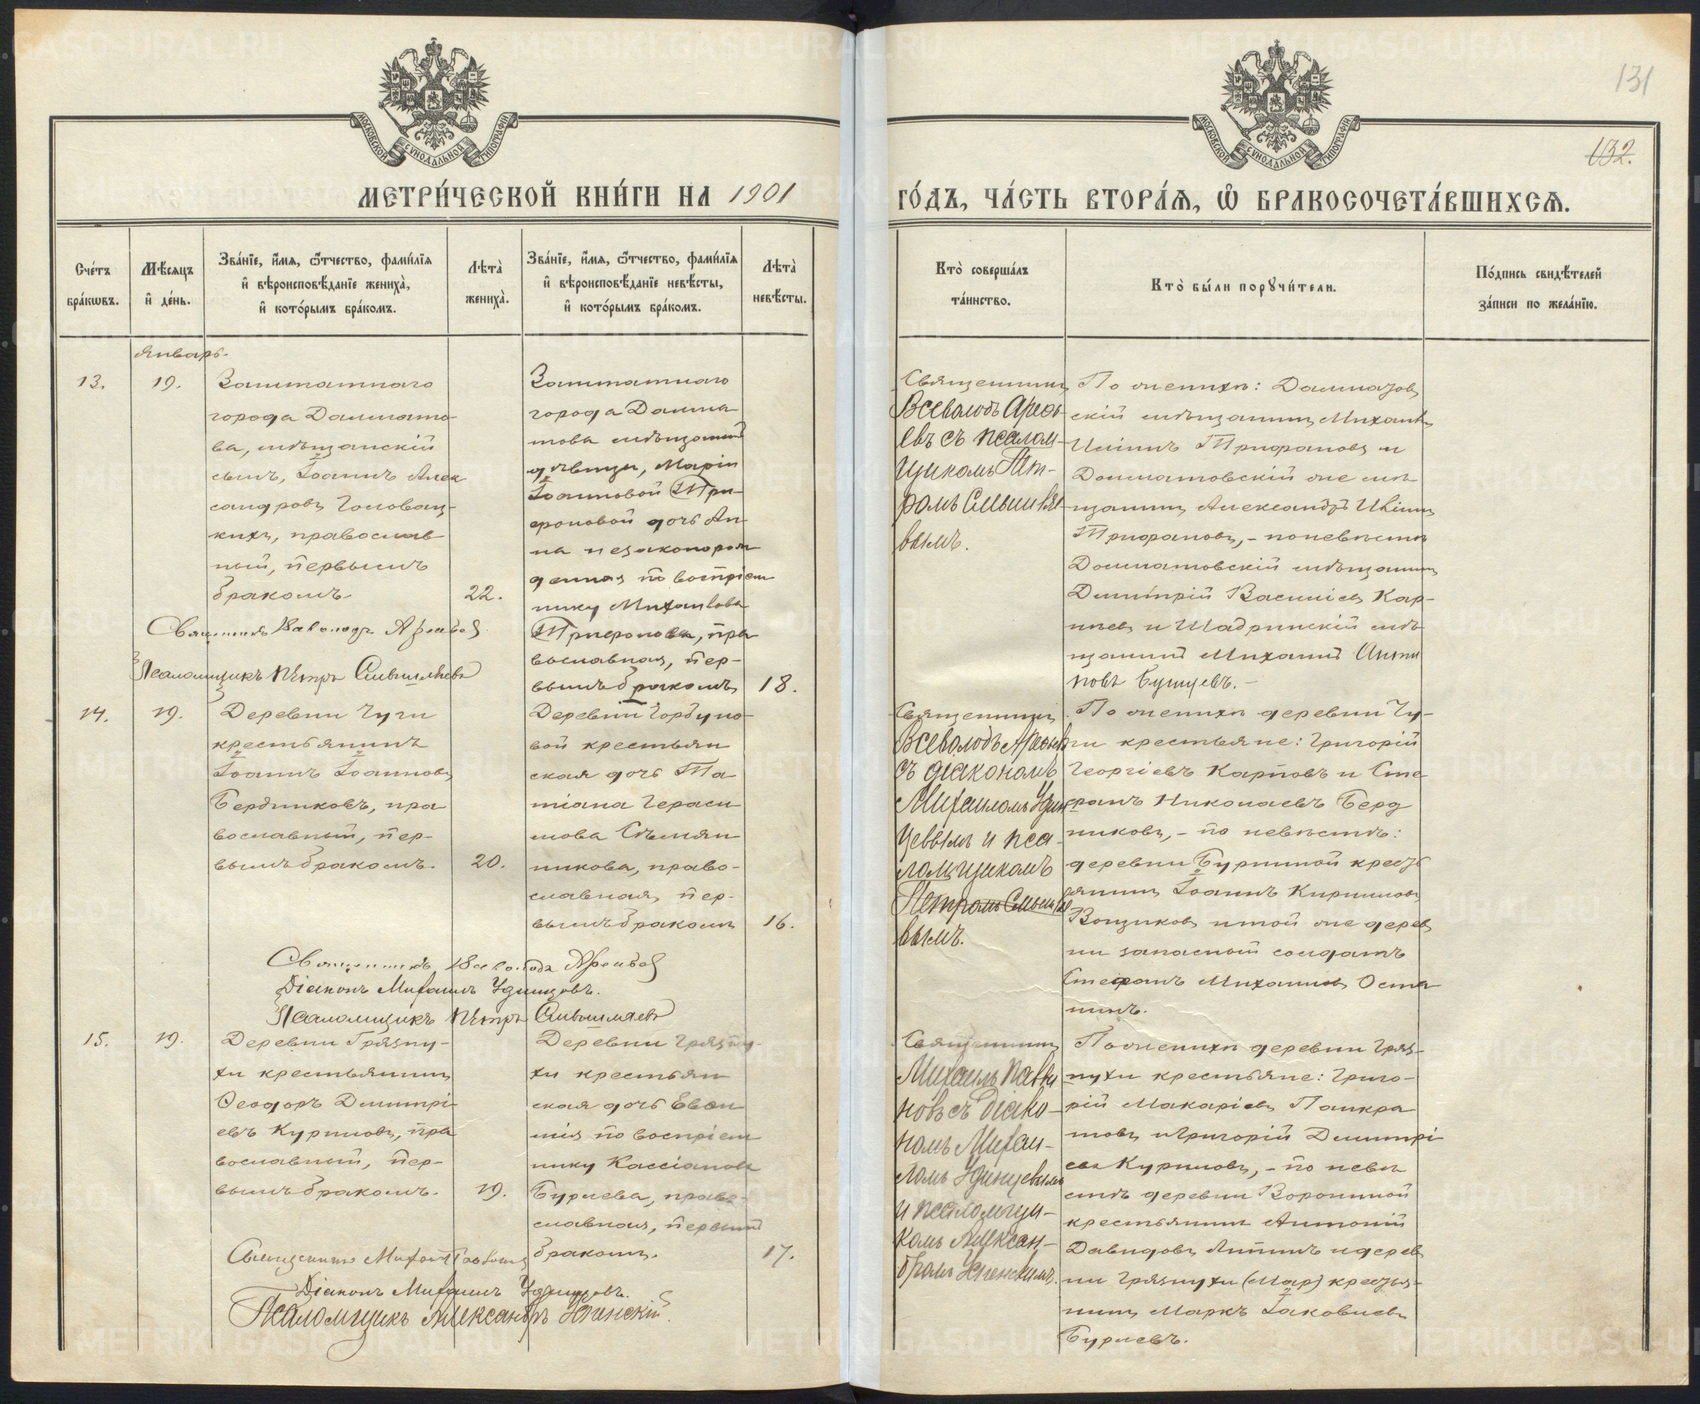 МЕТРИ́ЧЕСКОЙ КНИ́ГИ НА 1901
ГО́ДЪ, ЧА́СТЬ ВТОРА́Я, Ѽ БРАКОСОЧЕТА́ВШИХСЯ.
131
132.
МОСКОВСКОЙ СѴНОДАЛЬНОЙ ТИПОГРАФІИ
МОСКОВСКОЙ СѴНОДАЛЬНОЙ ТИПОГРАФІИ
Сче́тъ бра́ковъ.
Мѣ́сяцъ и҆ де́нь.
Зва́нїе, и҆́мя, ѻ҆́тчество, фами́лїя
и҆ вѣроисповѣ́данїе жениха̀,
и҆ кото́рымъ бра́комъ.
Лѣта̀ жениха̀.
Зва́нїе, и҆́мя, ѻ҆́тчество, фами́лїя
и҆ вѣроисповѣ́данїе невѣ́сты,
и҆ кото́рымъ бра́комъ.
Лѣта̀ невѣ́сты.
Кто̀ соверша́лъ та́инство.
Кто̀ бы́ли порꙋчи́тели.
По́дпись свидѣ́телей за́писи по жела́нїю.
Январь.
13.
19.
Заштатнаго
города Далмато-
ва, мѣщанскій
сынъ, Іоаннъ Алек
сандровъ Головац-
кихъ, православ
ный, первымъ
бракомъ.
22.
Заштатнаго
города Далма
това мѣщанской
дѣвицы, Маріи
Іоанновой Три-
фоновой дочь Ан-
на незаконорож
денная по воспріем
нику Михаилова
Трифонова, пра
вославная, пер-
вымъ бракомъ
18.
Священникъ
Всеволодъ Арефь-
евъ съ псалом-
щикомъ Пет-
ромъ Смышля
вымъ.
По женихѣ: Далматов
скій мѣщанинъ Михаилъ
Трифоновъ и
Далматовскій же мѣ
щанинъ Александръ
Трифоновъ, - по невѣстѣ
Далматовскій мѣщанинъ
Димитрій Василіевъ Кар-
и Шадринскій мѣ
щанинъ Михаилъ
Священникъ Всеволодъ Арефьев
Псаломщикъ Петръ Смышляевъ
14.
19.
Деревни Чуги
крестьянинъ
Іоаннъ Іоанновъ
Бердниковъ, пра
вославный, пер-
вымъ бракомъ.
20.
Деревни Горбуно-
вой крестьян
ская дочь Та
тіана Гераси
мова Съмян
никова, право-
славная, пер-
вымъ бракомъ
16.
Священникъ
Всеволодъ Арефьевъ
съ діакономъ
Михаиломъ Удин
цевымъ и пса
ломщикомъ
Петромъ Смышляе
вымъ.
По женихѣ деревни Чу-
ги крестьяне: Григорій
Георгіевъ Карповъ и Сте
фанъ Николаевъ Берд
никовъ, - по невѣстѣ:
деревни Буриной крестъ
янинъ Іоаннъ Кирилловъ
и той же дерев
ни запасный солдатъ
Стефанъ Михаиловъ Оста
нинъ.
Священникъ Всеволодъ Арефьев
Діаконъ Михаилъ Удинцовъ.
Псаломщикъ Петръ Смышляевъ
15.
19.
Деревни Грязну-
хи крестьянинъ
Ѳеодоръ Димитрі-
евъ Куриловъ, пра
вославный, пер-
вымъ бракомъ.
19.
Деревни Грязну-
хи крестьян
ская дочь Евѳи
мія по воспріем
нику Кассіанова
Бурлева, право-
славная, первымъ
бракомъ.
17.
Священникъ
Михаилъ Павли
новъ съ діако-
номъ Михаи-
ломъ Удинцевымъ
и псаломщи-
комъ Алексан-
дромъ Успенскимъ.
По женихѣ деревни Гряз-
нухи крестьяне: Григо-
рій Макаріевъ Панкра
товъ и Григорій Димитрі
евъ Куриловъ, - по невѣ
стѣ деревни Ворониной
крестьянинъ Антоній
Давидовъ и дерев
ни Грязнухи (Мар) крестья-
нинъ Маркъ Іаковлевъ
Бурлевъ.
Священникъ Михаилъ Павлинов
Діаконъ Михаилъ Удинцовъ.
Псаломщикъ Александръ Успенскій.